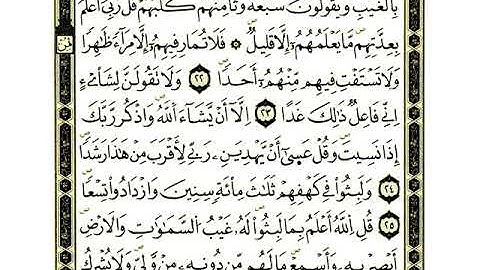 بِالْغَيْبِ وَيَقُولُونَ سَبْعَةٌ وَثَامِنُهُمْ كَلْبُهُمْ قُلْ رَبِّي أَعْلَمُ
بِعِدَّتِهِمْ مَا يَعْلَمُهُمْ إِلَّا قَلِيلٌ فَلَا تُمَارِ فِيهِمْ إِلَّا مِرَاءً ظَاهِرًا
وَلَا تَسْتَفْتِ فِيهِمْ مِنْهُمْ أَحَدًا ٢٢ وَلَا تَقُولَنَّ لِشَاْيْءٍ
إِنِّي فَاعِلٌ ذَٰلِكَ غَدًا ٢٣ إِلَّا أَنْ يَشَاءَ اللَّهُ وَاذْكُرْ رَبَّكَ
إِذَا نَسِيتَ وَقُلْ عَسَىٰ أَنْ يَهْدِيَنِ رَبِّي لِأَقْرَبَ مِنْ هَٰذَا رَشَدًا
٢٤ وَلَبِثُوا فِي كَهْفِهِمْ ثَلَاثَ مِائَةٍ سِنِينَ وَازْدَادُوا تِسْعًا
٢٥ قُلِ اللَّهُ أَعْلَمُ بِمَا لَبِثُوا لَهُ غَيْبُ السَّمَاوَاتِ وَالْأَرْضِ
أَبْصِرْ بِهِ وَأَسْمِعْ مَا لَهُمْ مِنْ دُونِهِ مِنْ وَلِيٍّ وَلَا يُشْرِكُ